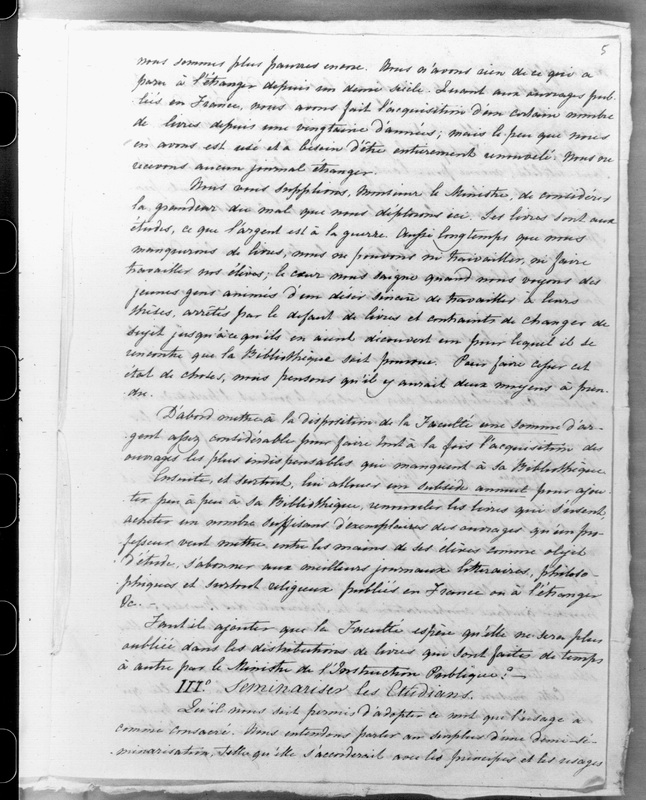 5
nous sommes plus pauvres encore. Nous n'avons rien de ce qui a
paru à l'étranger depuis un demi siècle. Quant aux ouvrages pub-
liés en France, nous avons fait l'acquisition d'un certain nombre
de livres depuis une vingtaine d'années; mais le peu que nous
en avons est usé et a besoin d'être entièrement renouvelé. Nous ne
recevons aucun journal étranger.
Nous vous supplions, Monsieur le Ministre, de considérer
la grandeur du mal que nous déplorons ici. Les livres sont aux
études, ce que l'argent est à la guerre. Aussi longtemps que nous
manquerons de livres, nous ne pouvons ni travailler, ni faire
travailler nos élèves; le cœur nous saigne quand nous voyons des
jeunes gens animés d'un désir sincère de travailler à leurs
thèses, arrêtés par le defaut de livres et contraints de changer de
sujet jusqu'à ce qu'ils en aient découvert un pour lequel il se
rencontre que la Bibliothèque soit pourvue. Pour faire cesser cet
état de choses, nous pensons qu'il y aurait deux moyens à pren-
dre.
D'abord mettre à la disposition de la Faculté une somme d'ar-
gent assez considérable pour faire tout à la fois l'acquisition des
ouvrages les plus indispensables qui manquent à sa Bibliothèque.
Ensuite, et surtout, lui allouer un subside annuel pour ajou-
ter peu à peu à sa Bibliothèque, renouveler les livres qui s'usent,
acheter un nombre suffisant d'exemplaires des ouvrages qu'un pro-
fesseur veut mettre entre les mains de ses élèves comme objet
d'étude, s'abonner aux meilleurs journaux litteraires, philoso-
phiques et surtout religieux publiés en France ou à l'étranger
&c.
Faut-il ajouter que la Faculté espère qu'elle ne sera plus
oubliée dans les distributions de livres qui sont faites de temps
à autre par le Ministre de l'Instruction Publique? —
III.° Séminariser les Etudians.
Qu'il nous soit permis d'adopter ce mot que l'usage a
comme consacré. Nous entendons parler au surplus d'une demi-sé-
minarisation, telle qu'elle s'accorderait avec les principes et les usages